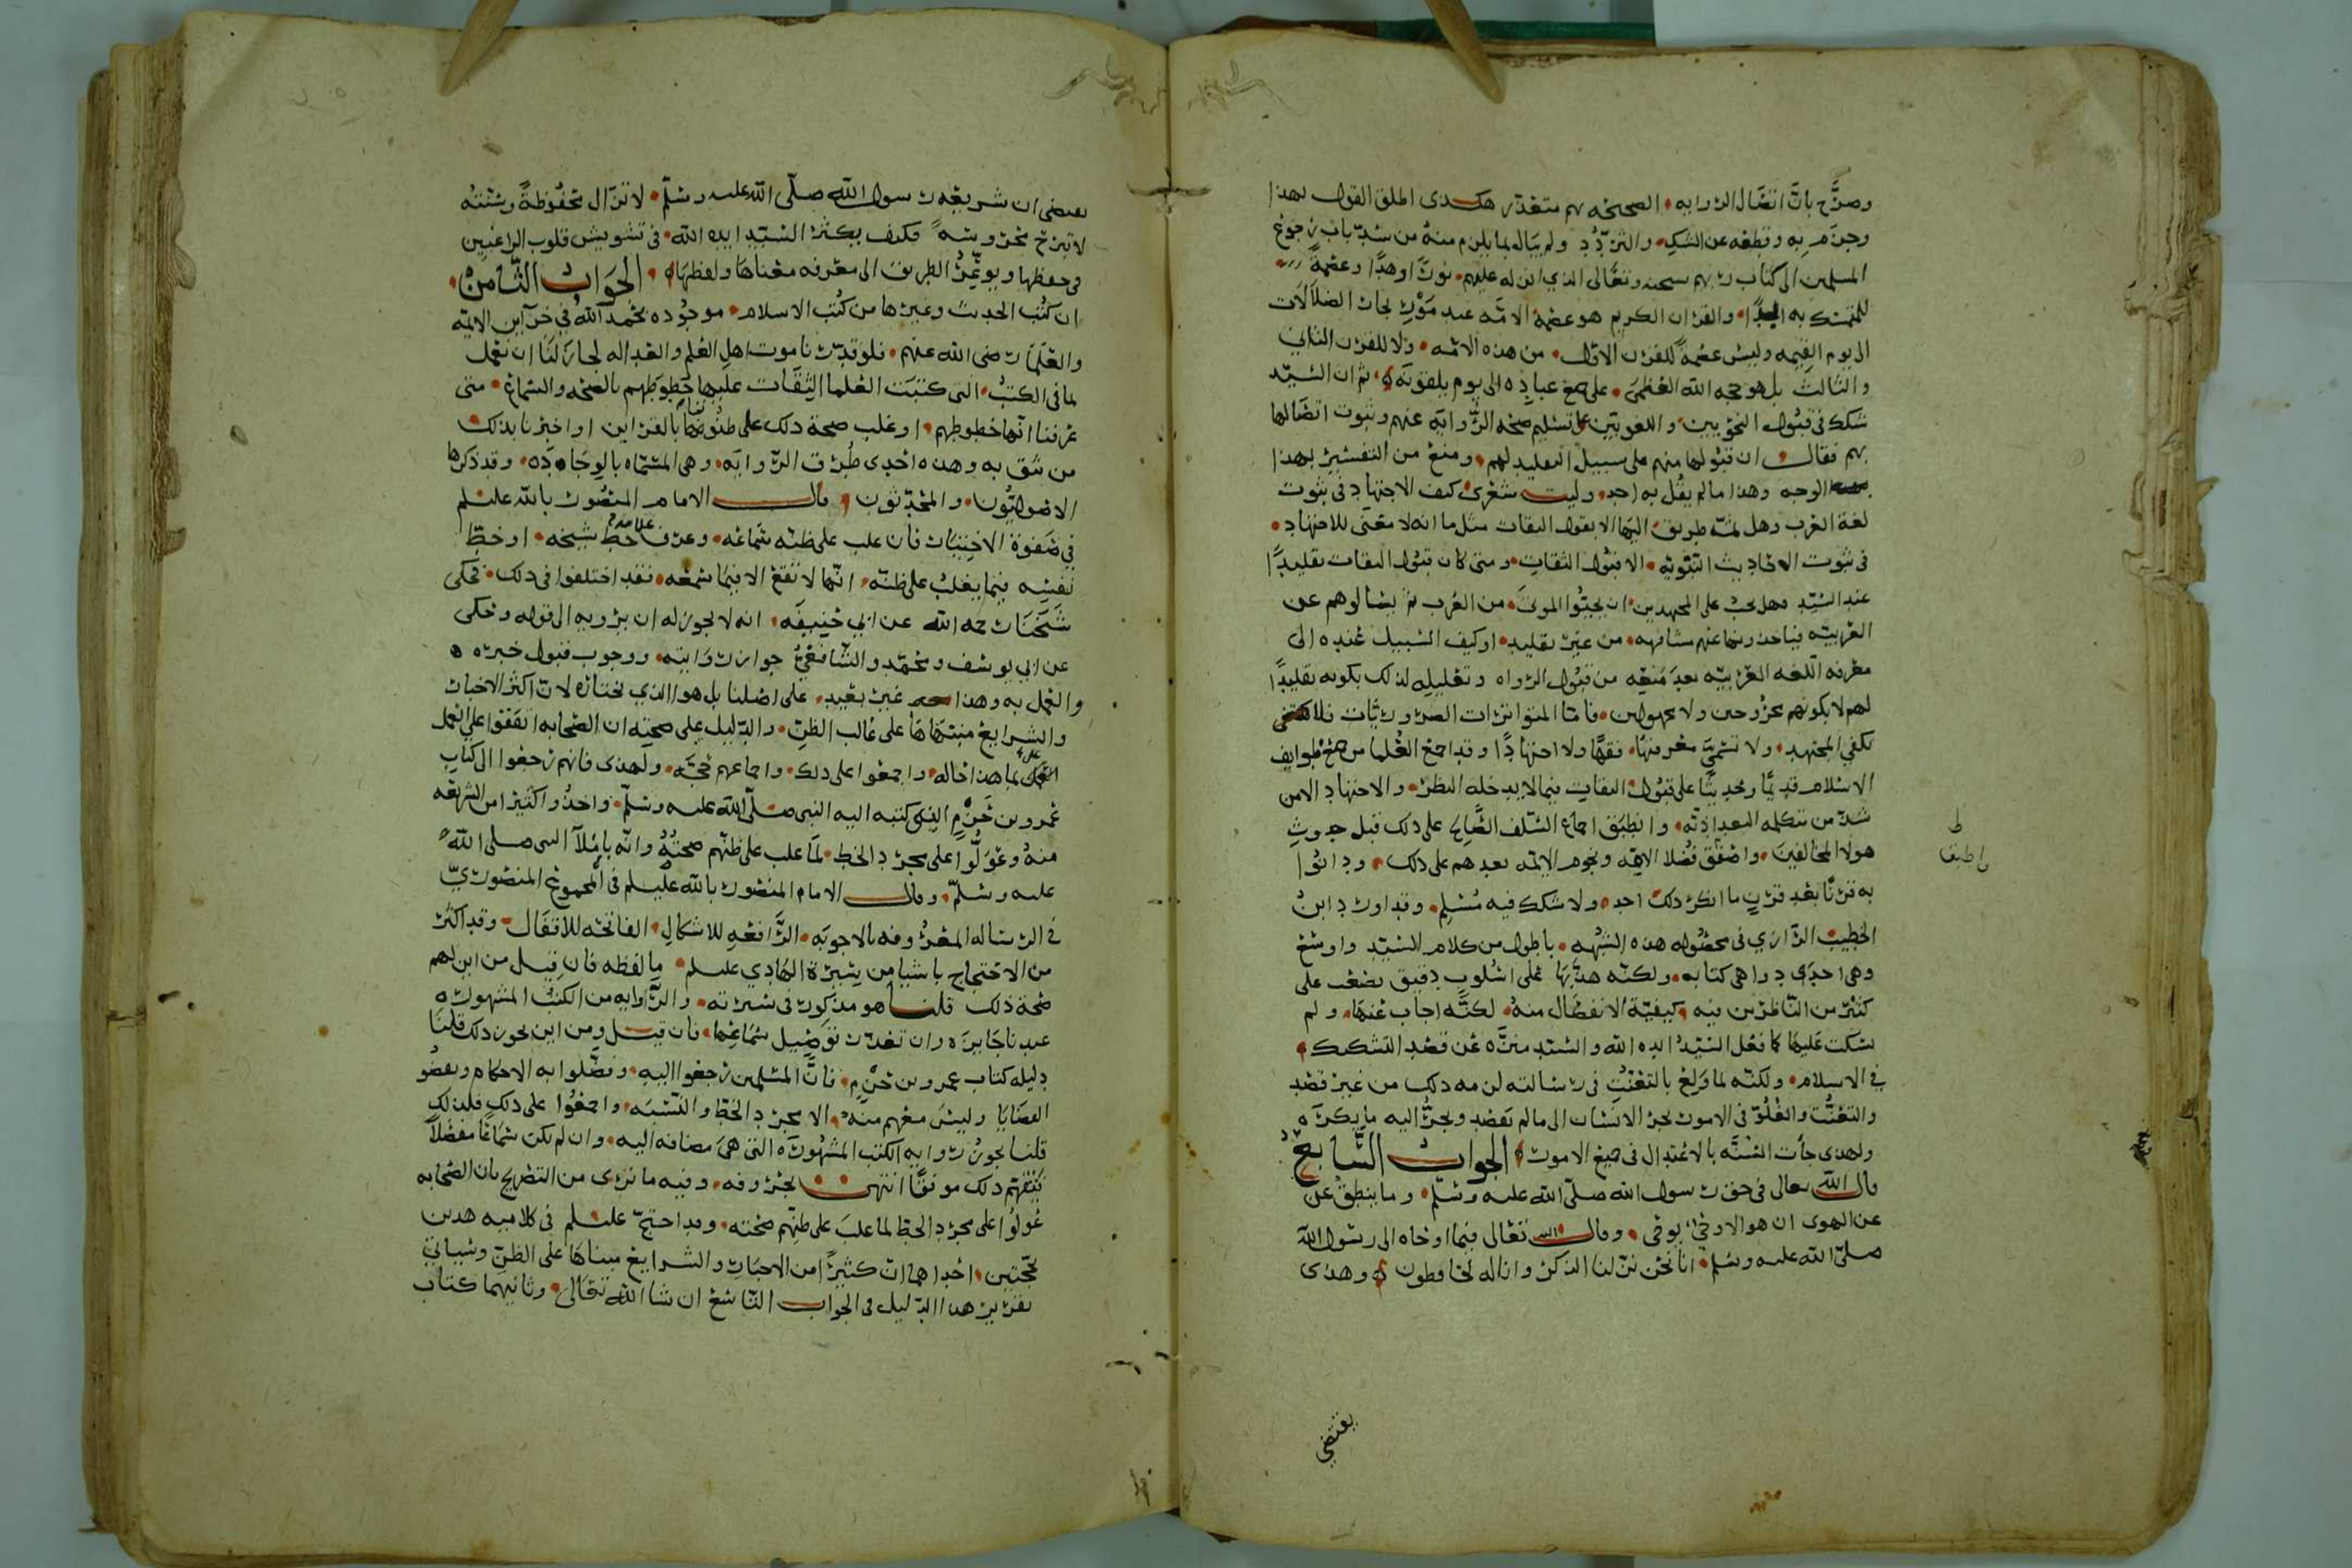 وصرَّح بانَّ اتصال الروايه الصحيحه بهم متعذر هكذى اطلق القول بهذا
وجزم به وقطعه عن الشك والتردُّد ولم يبال بما يلزم منه من سد باب رجوع
المسلمين الى كتاب ربهم سبحنه وتعالى الذي انزله عليهم نورًا وهدًا وعصمةً
للمتمسك به ابدًا والقران الكريم هو عصمة الامه عند مَوْج بحار الضلالات
الى يوم القيمه وليس عصمةً للقرن الاول من هذه الامه ولا للقرن الثاني
والثالث بل هو حجه الله العظمى على جميع عباده الى يوم يلقونه ثم ان السيد
شكك في قبول النحويين واللغويين على تسليم صحه الرواية عنهم وثبوت اتصالها
بهم فقال ان قبولها منهم على سبيل التقليد لهم ومنع من التفسير بهذا
الوجه وهذا ما لم يقُل به احد وليت شعري كيف الاجتهاد في ثبوت
لغة العرب وهل ثمه طريق اليها الا بقول الثقات مثل ما انه لا معنى للاجتهاد
في ثبوت الاحاديث النبويه الا قبول الثقات ومتى كان قبول الثقات تقليدًا
عند السيد فهل يجب على المجتهدين ان يحيوا الموتى من العرب ثم يسالوهم عن
العربيه فياخذونها عنهم مشافهه من غير تقليد او كيف السبيل عنده الى
معرفه اللغه العربيه بعد مَنعِه من قبول الرواه وتعليله لذلك بكونه تقليدًا
لهم لا بكونهم مجروحين ولا مجهولين فاما المتواترات الضروريَّات فلا
تكفي المجتهد ولا تسمى معرفتها فقهًا ولا اجتهادًا وقد اجمع العُلما من جميع طوايف
الاسلام قديمًا وحديثًا على قبول الثقات فيما لا يدخله النظر والاجتهاد الا من
شذ من متكلمه البغداديه وانطبق اجماع السلف الصالح على ذلك قبل حدوث
هولا المخالفين واصفق فُضلا الايمه ونجوم الامه بعدهم على ذلك ودانُوا
به قرنًا بعد قرنٍ ما انكر ذلك احد ولا شكك فيه مُسلم وقد اورد ابنُ
الخطيب الرازي في محصُوله هذه الشبهه باطول من كلام السيد واوسع
وهي احدى دواهي كتابه ولكنه هذَّبها على اسُلوب دقيق يصعب على
كثير من الناظرين فيه كيفيّة الانفصال منهُ لكنّه اجاب عنهَا ولم
يسكت عليها كما فعل السيّدُ ايده الله والسيد منزَّه عن قصد التشكيك
في الاسلام ولكنّه لما ولع بالتعنُّتِ في رسالته لزمه ذلك من غير قصد
والتعنُّت والغلُوّ في الامور يجر الانسان الى ما لم يقصد ويجرُّ اليه ما يكره
ولهذى جأت السُّنَّه بالاعتدال في جميع الامور الجواب السَّابعُ
قال الله تعالى في حق رسول الله صلى الله عليه وسلم وما ينطق عن
عن الهوى ان هو الا وحيٌ يوحى وقال الله تعالى فيما اوحاه الى رسُول الله
صلى الله عليه وسلم انا نحن نزلنا الذكر وانا له لحافظون وهذى
يقتضي
ط
وانطبق
يقتضى ان شريعه رسول الله صلى الله عليه وسلم لا تزال محفُوظةً وسُنّتُه
لا تبرح محروسَهً فكيف يكثر السيد ايده الله في تشويش قلوب الراغبين
في حفظها ويوعِّرُ الطريق الى معرفه معناهَا ولفظهَا الجَوَابُ الثَّامنُ
ان كتُب الحديث وغيرها من كتُب الاسلام موجُوده بحمد الله في خزآين الايمه
والعلمَا رضي الله عنهم فلو قدّرنا موت اهل العلم والعداله لجاز لنَا ان نعمل
بما في الكتُب التي كتبَت العُلما الثِّقَات عليها خُطوطهم بالصحه والسَّماع متى
عرفنا انها خطوطهم او غلب صحة ذلك على ظنُوننا بالقراين او اخبرنا بذلك
من نثق به وهذه احدى طُرق الروايه وهي المسمَّاه بالوِجَادَه وقد ذكرها
الاصُوليُّون والمحدّثون قال الامام المنصُور بالله عليلم
في صَفوَة الاختيَار فان غلب على ظنه سَماعُه وعرف خَطّ شيخه او خطّ
نفسِه فيما يغلبُ على ظنّه انّها لا تقع الا فيمَا سَمعَه فقد اختلفوا في ذلك فحكى
شَيخنَا رحمه الله عن ابي حَنِيفَه انه لا يجوز له ان يرويه الى قوله وحكى
عن ابي يوسُف ومحمّد والشّافعيِّ جواز روَايته ووجوب قبول خبره
والعمل به وهذا غيرُ بعيد على اصُلنا بل هو الذي نختاره لان اكثر الاخبار
والشرايع مبنَاها على غالب الظنّ والدّليل على صحته ان الصّحابه اتفقوا على العمل
بما هذا حاله واجمعُوا على ذلك واجماعهم حُجَّه ولهذى فانهم رجعُوا الى كتاب
عَمرو بن حَزْمٍ الذي كتبه اليه النبي صلّى الله عليه وسلّم واخذُوا كثيرًا من الشريعه
منهُ وعَوَّلُوا على مجرّد الخط لمَا غلب على ظنّهم صحتُهُ وانّه باملاءِ النبي صلى الله
عليه وسلّم وقال الامام المنصُور بالله عليلم في المجموع المنصُوريّ
في الرساله المعرُوفه بالاجوبَه الرَّافعَه للاشكال الفاتحَه للاقفَال وقد اكثر
من الاحتجاج باشيَا من سِيرَة الهَادي عليلم ما لفظه فان قيل من اين لهم
صحة ذلك قلنا هو مذكور في سيرته والرَّوايه من الكتب المشهورَه
عندنا جَايزه وان تعذَّر تفصِيل سَمَاعِها فان قيل ومن اين يجوز ذلك قلنَا
دليله كتاب عمرو بن حَزْم فانَّ المسُلمين رجعوا اليهِ وفصَّلوا به الاحكام وبعضُ
القضَايَا وليسَ معهم منهُ الا مجرّد الخطِّ والنّسبَه واجمعُوا على ذلك فلذلك
قلنا يجوزُ روايه الكتب المشهُورَه التي هيَ مضافه اليه وان لم يكن سَماعًا مفصّلًا
فتَفهّم ذلك موفقًا انتهى بحرُوفه وفيه ما ترى من التصريح بان الصّحابه
عَولُوا على مجرّد الخط لما غلبَ على ظنِّهم صحته وقد احتج عليلم في كلاميه هذين
بحُجّتين احداهما ان كثيرًا من الاخبَار والشرايع مبناهَا على الظنّ وسَيَاتي
تقرير هذا الدّليل في الجوابِ التّاسع ان شا الله تعَالى وثانيهما كتاب